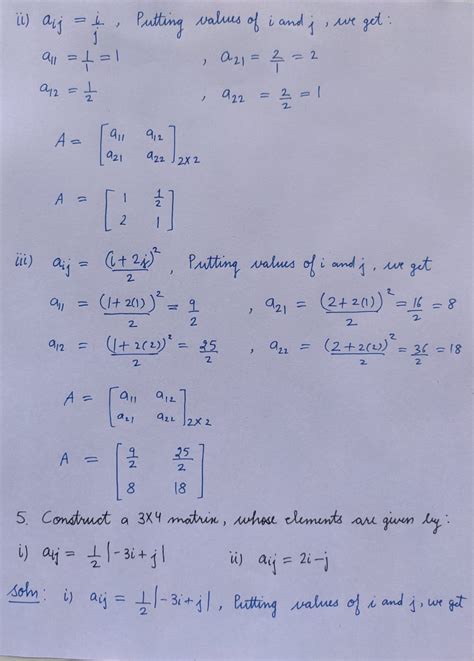 ii) aij = i/j , Putting values of i and j , we get :
a11 = 1/1 = 1 , a21 = 2/1 = 2
a12 = 1/2 , a22 = 2/2 = 1
A = [ a11 a12
a21 a22 ]2×2
A = [ 1 1/2
2 1 ]
iii) aij = (i + 2j)²/2 , Putting values of i and j, we get
a11 = (1+2(1))²/2 = 9/2 , a21 = (2+2(1))²/2 = 16/2 = 8
a12 = (1+2(2))²/2 = 25/2 , a22 = (2+2(2))²/2 = 36/2 = 18
A = [ a11 a12
a21 a22 ]2×2
A = [ 9/2 25/2
8 18 ]
5. Construct a 3×4 matrix, whose elements are given by :
i) aij = 1/2 |-3i + j| ii) aij = 2i-j
Soln : i) aij = 1/2 |-3i + j| , Putting values of i and j, we get